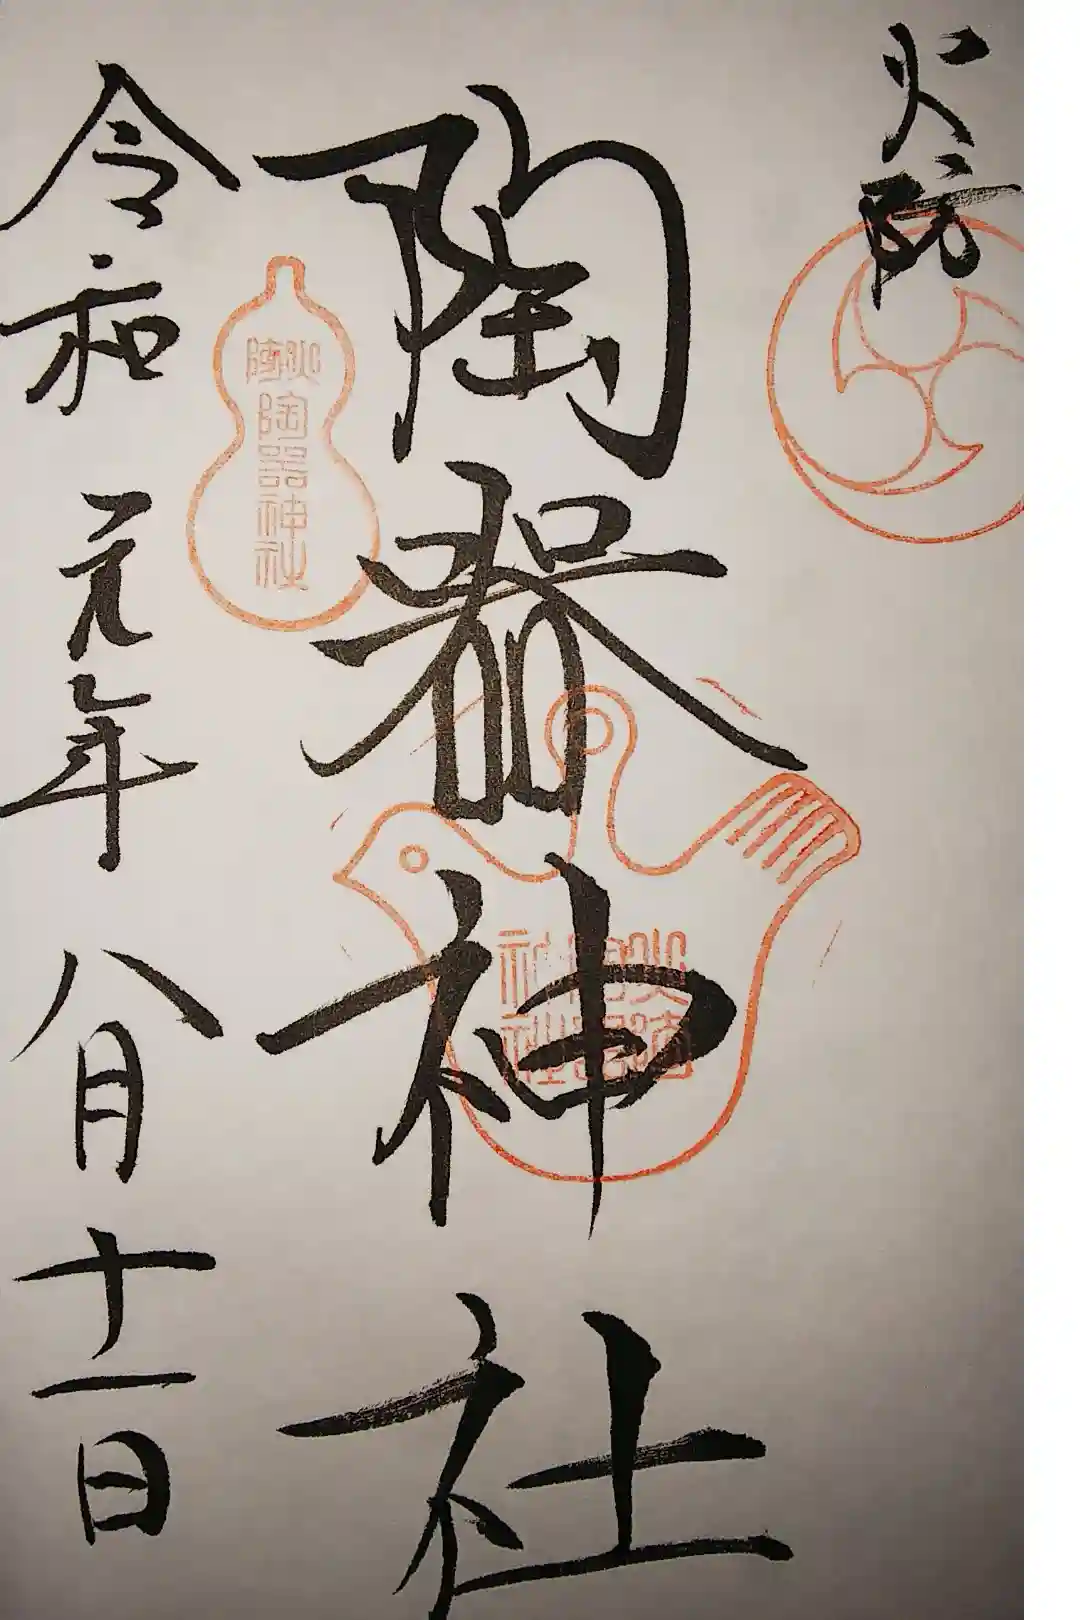 火防
陶器神社
火防
陶器神社
火防
陶器
神社
令和元年八月十一日